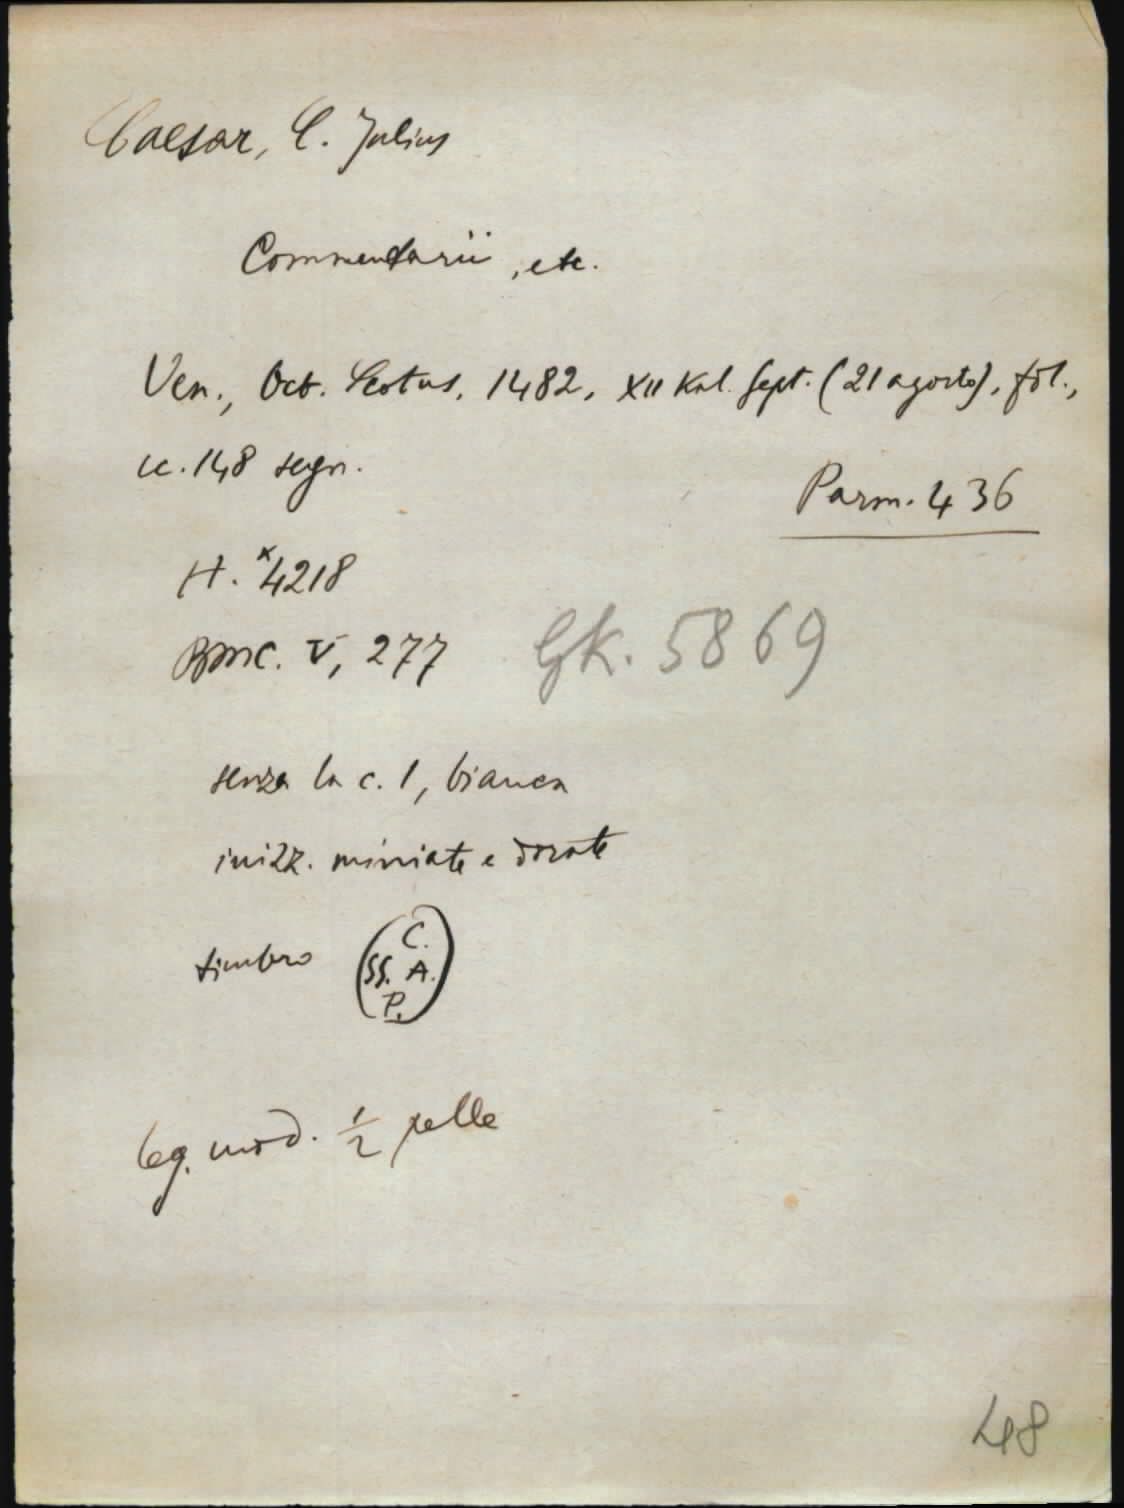 Caesar, C. Julius
Commentarii, etc.
Ven., Oct. Scotus, 1482, XII Kal. Sept. (21 agosto), fol.,
cc. 148 segn.
Parm. 436
H. *4218
BMC. V, 277
GK. 5869
senza la c. 1, bianca
inizz. miniate e dorate
timbro
C.
SS. A.
P.
leg. mod. 1/2 pelle
48